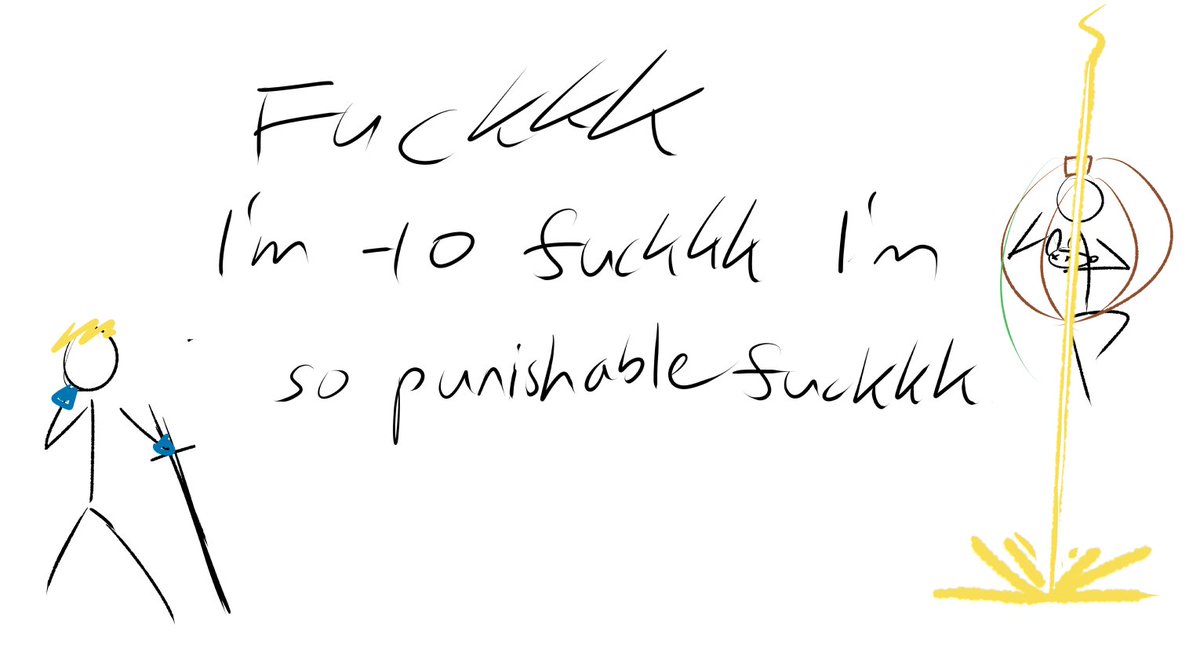 Fuckkk
I'm -10 fuckkk I'm
so punishable fuckkk